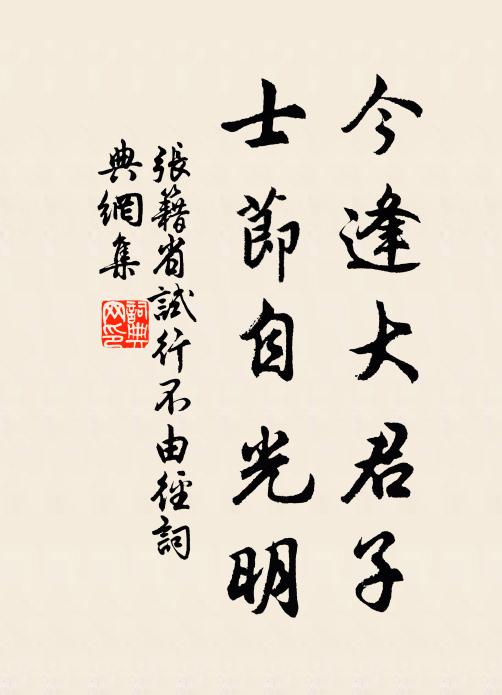 今逢大君子
士節自光明
張籍省試行不由徑詞
典網集
詞典
网印